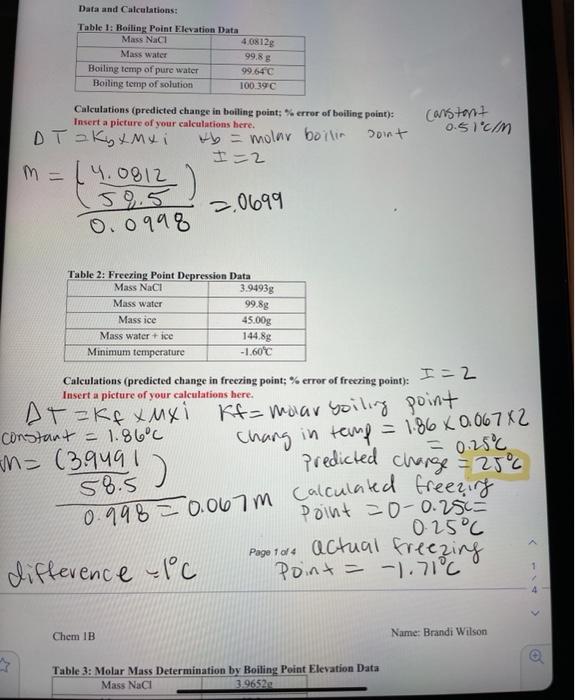 Data and Calculations:
Table 1: Boiling Point Elevation Data
Mass NaCl 4.0812g
Mass water 99.8 g
Boiling temp of pure water 99.64°C
Boiling temp of solution 100.39°C
Calculations (predicted change in boiling point; % error of boiling point):
Insert a picture of your calculations here.
constant
0.51°C/M
ΔT = Kb x M x i Kb = molar boilin point
I = 2
m = (4.0812
58.5)
0.0998
= .0699
Table 2: Freezing Point Depression Data
Mass NaCl 3.9493g
Mass water 99.8g
Mass ice 45.00g
Mass water + ice 144.8g
Minimum temperature -1.60°C
Calculations (predicted change in freezing point; % error of freezing point): I = 2
Insert a picture of your calculations here.
ΔT = Kf x M x i Kf = molar boiling point
constant = 1.86°C
Chang in temp = 1.86 x 0.067 x 2
= 0.25°C
m = (3.9491
58.5)
0.998 = 0.067 m
predicted change = 25°C
Calculated freezing
point = 0 - 0.25C =
0.25°C
Page 1 of 4
actual freezing
Point = -1.71°C
difference ~1°C
1
4
Chem 1B
Name: Brandi Wilson
Table 3: Molar Mass Determination by Boiling Point Elevation Data
Mass NaCl 3.9652g